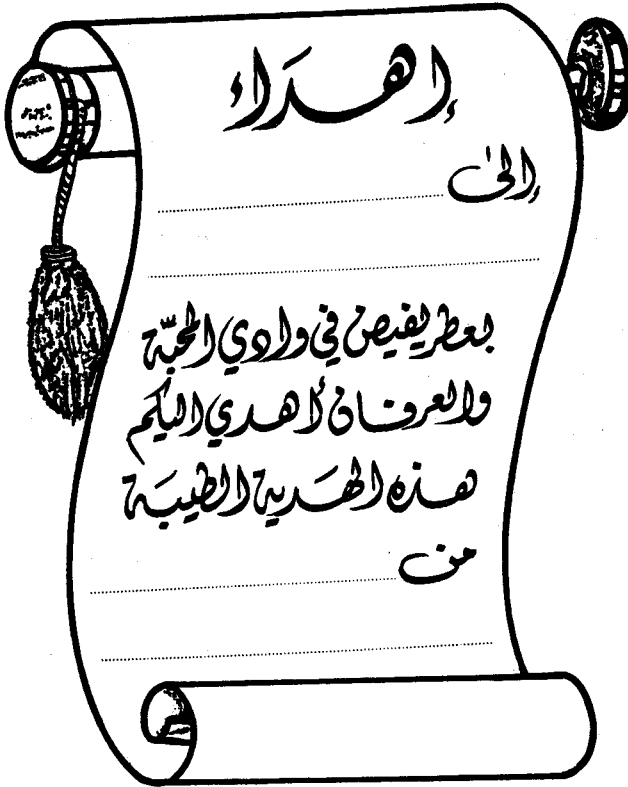 إهداء
إلى
بعطر يفيض في وادي المحبّة
والعرفان أهدي اليكم
هذه الهدية الطيبة
من